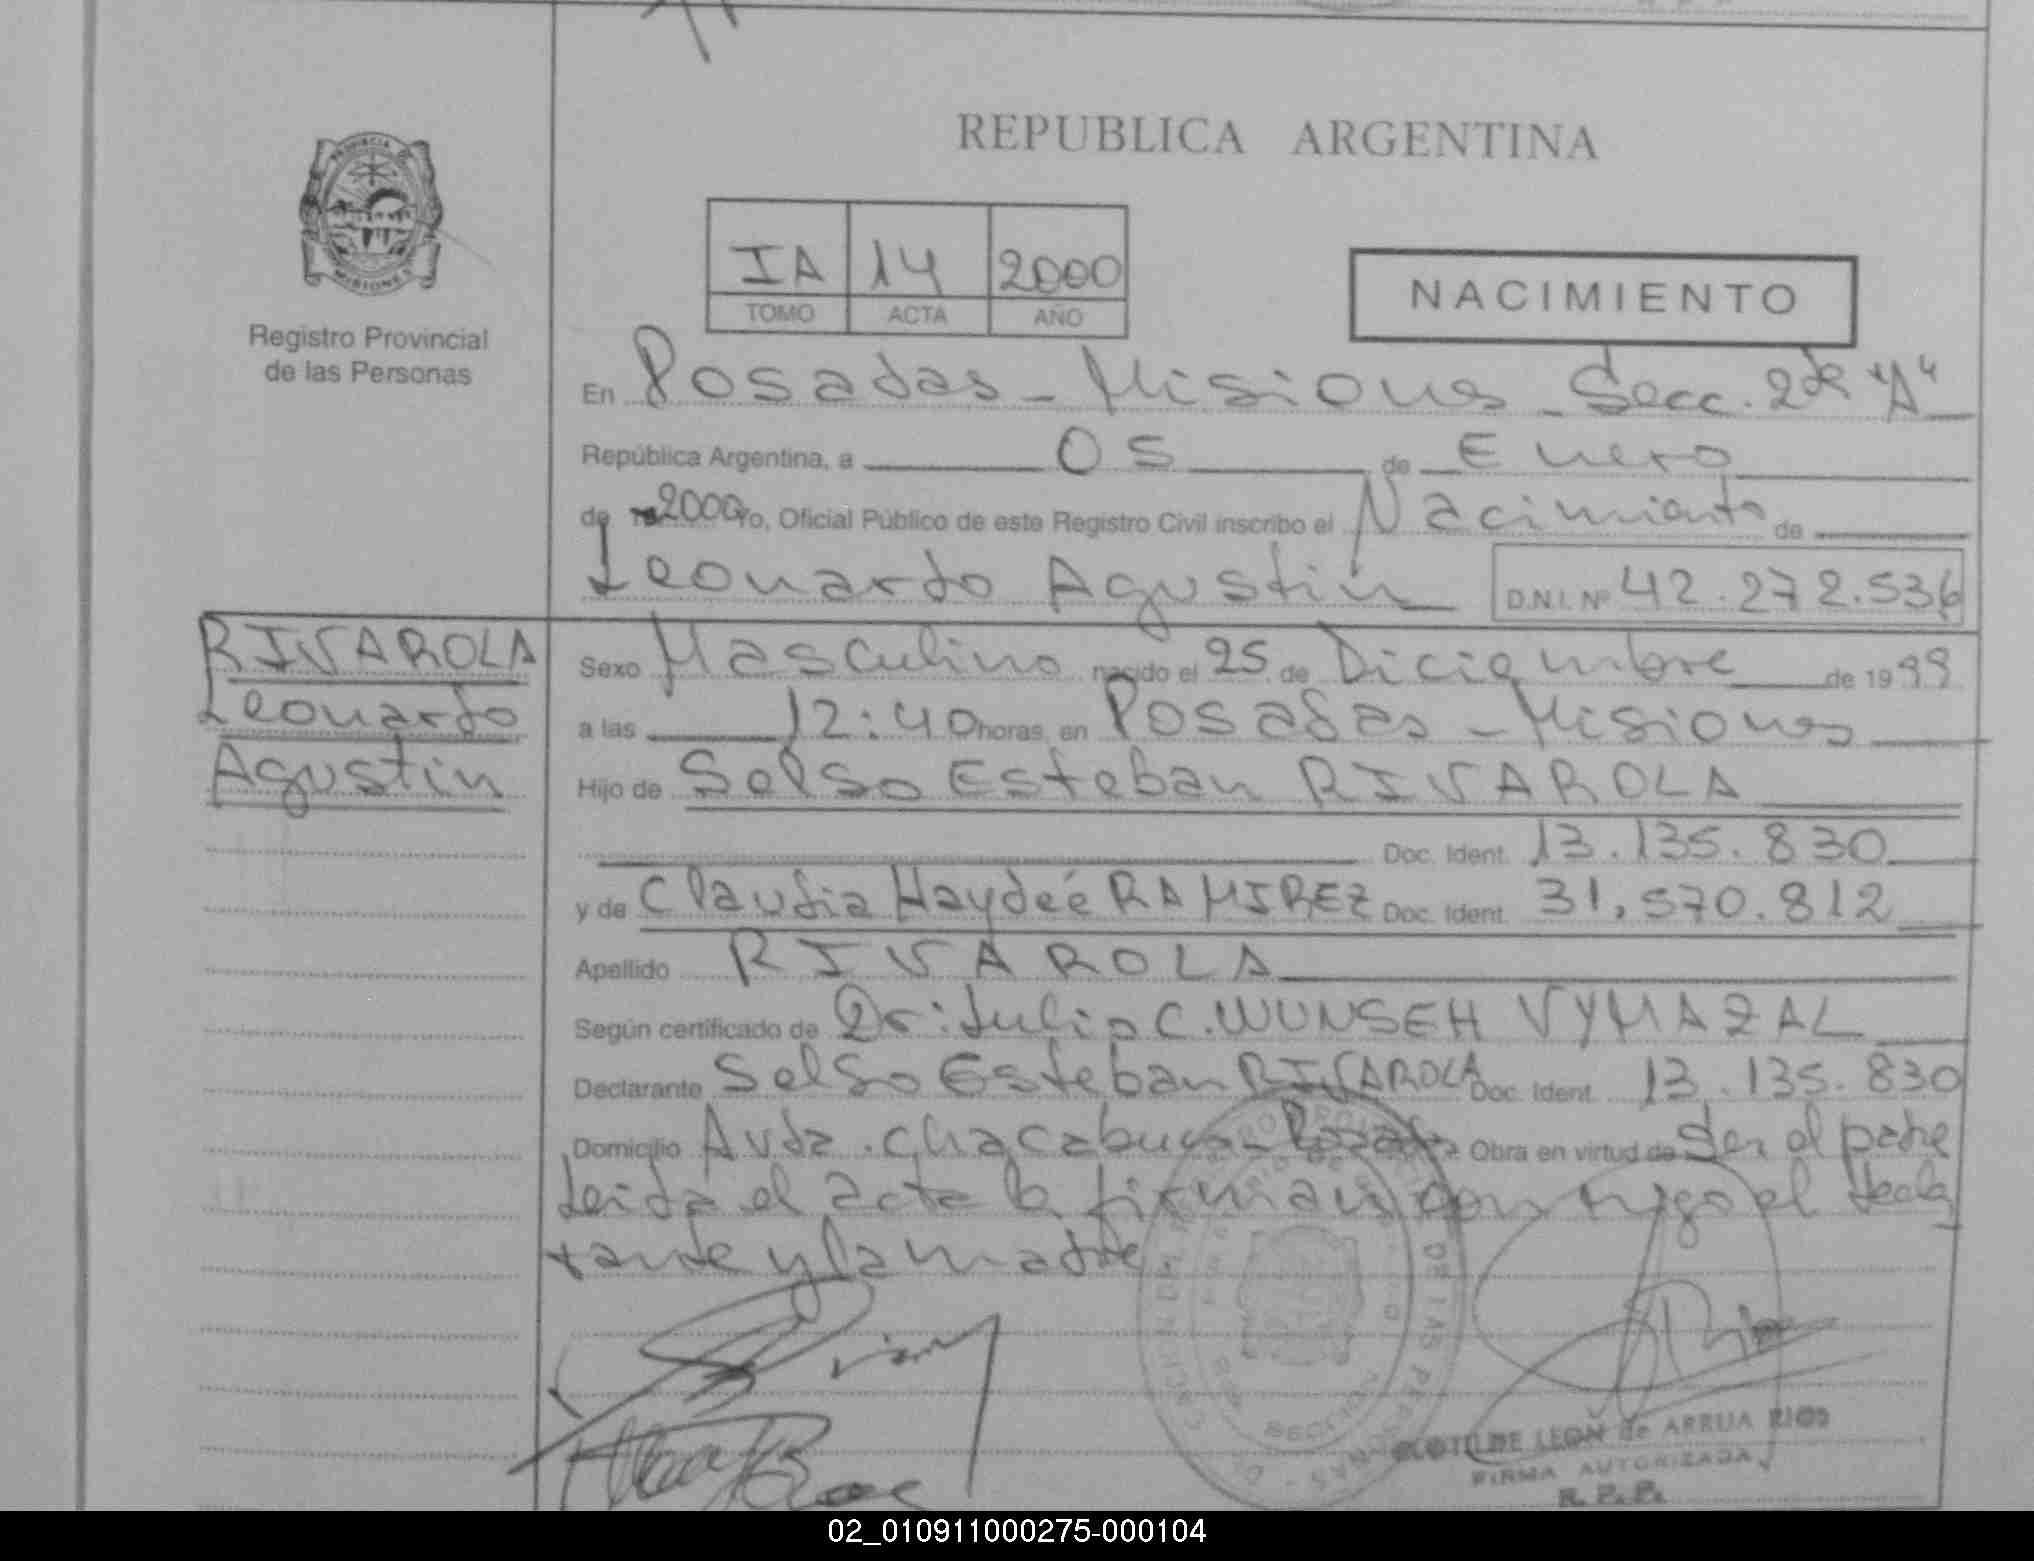 REPUBLICA ARGENTINA
PROVINCIA DE
MISIONES
Registro Provincial
de las Personas
IA 14 2000
TOMO ACTA AÑO
NACIMIENTO
En Posadas - Misiones - Secc. 2da "A"
República Argentina, a 05 de Enero
de 2000 Yo, Oficial Público de este Registro Civil inscribo el Nacimiento de
Leonardo Agustin D.N.I. Nº 42.272.536
RIVAROLA
Leonardo
Agustin
Sexo Masculino nacido el 25 de Diciembre de 1999
a las 12:40 horas, en Posadas - Misiones
Hijo de Selso Esteban RIVAROLA
Doc. Ident. 13.135.830
y de Claudia Haydeé RAMIREZ Doc. Ident. 31,570.812
Apellido RIVAROLA
Según certificado de Dr: Julio C. WUNSEH VYMAZAL
Declarante Selso Esteban RIVAROLA Doc. Ident. 13.135.830
Domicilio Avda. Chacabuco - Posadas Obra en virtud de Ser el padre
Leida el acta la firman conmigo el decla
rante y la madre.
CLOTILDE LEON de ARRUA RIOS
FIRMA AUTORIZADA
R. P. P.
02_010911000275-000104